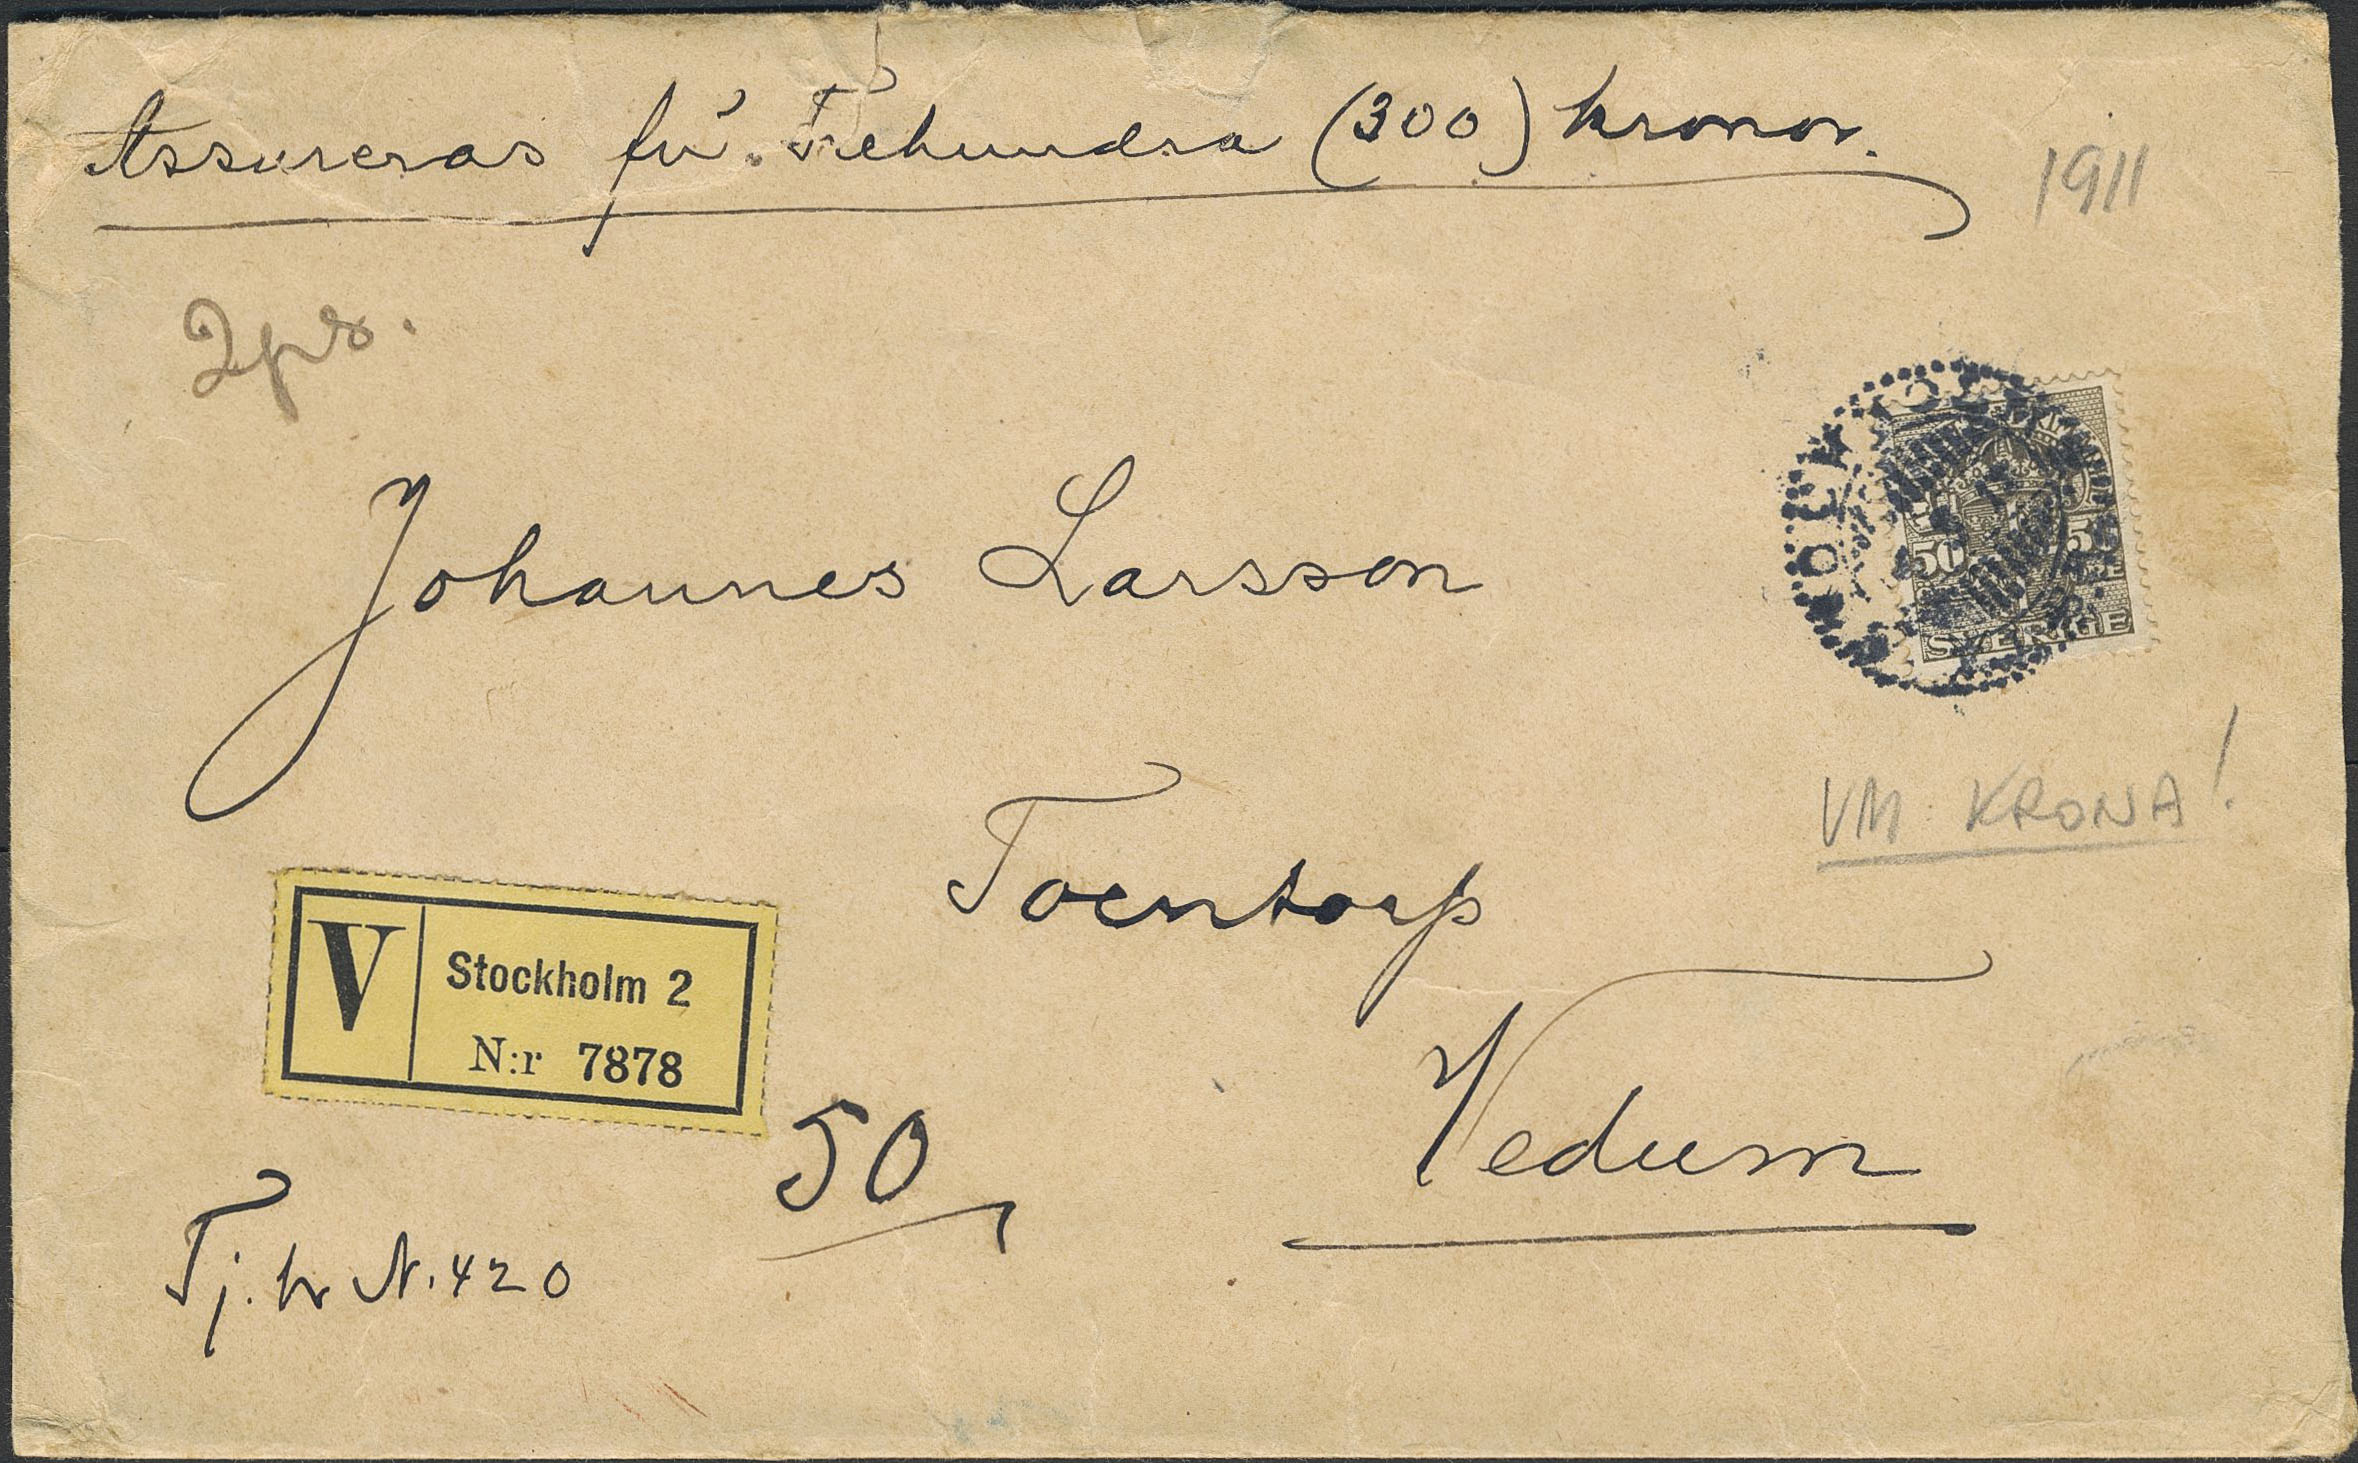 Assureras för Trehundra (300) kronor.
1911
2 prs.
Johannes Larsson
STOCKHOLM
50 50
ÖRE
SVERIGE
VM KRONA!
Torntorp
V
Stockholm 2
N:r 7878
50
Vedum
Tj. br N. 420